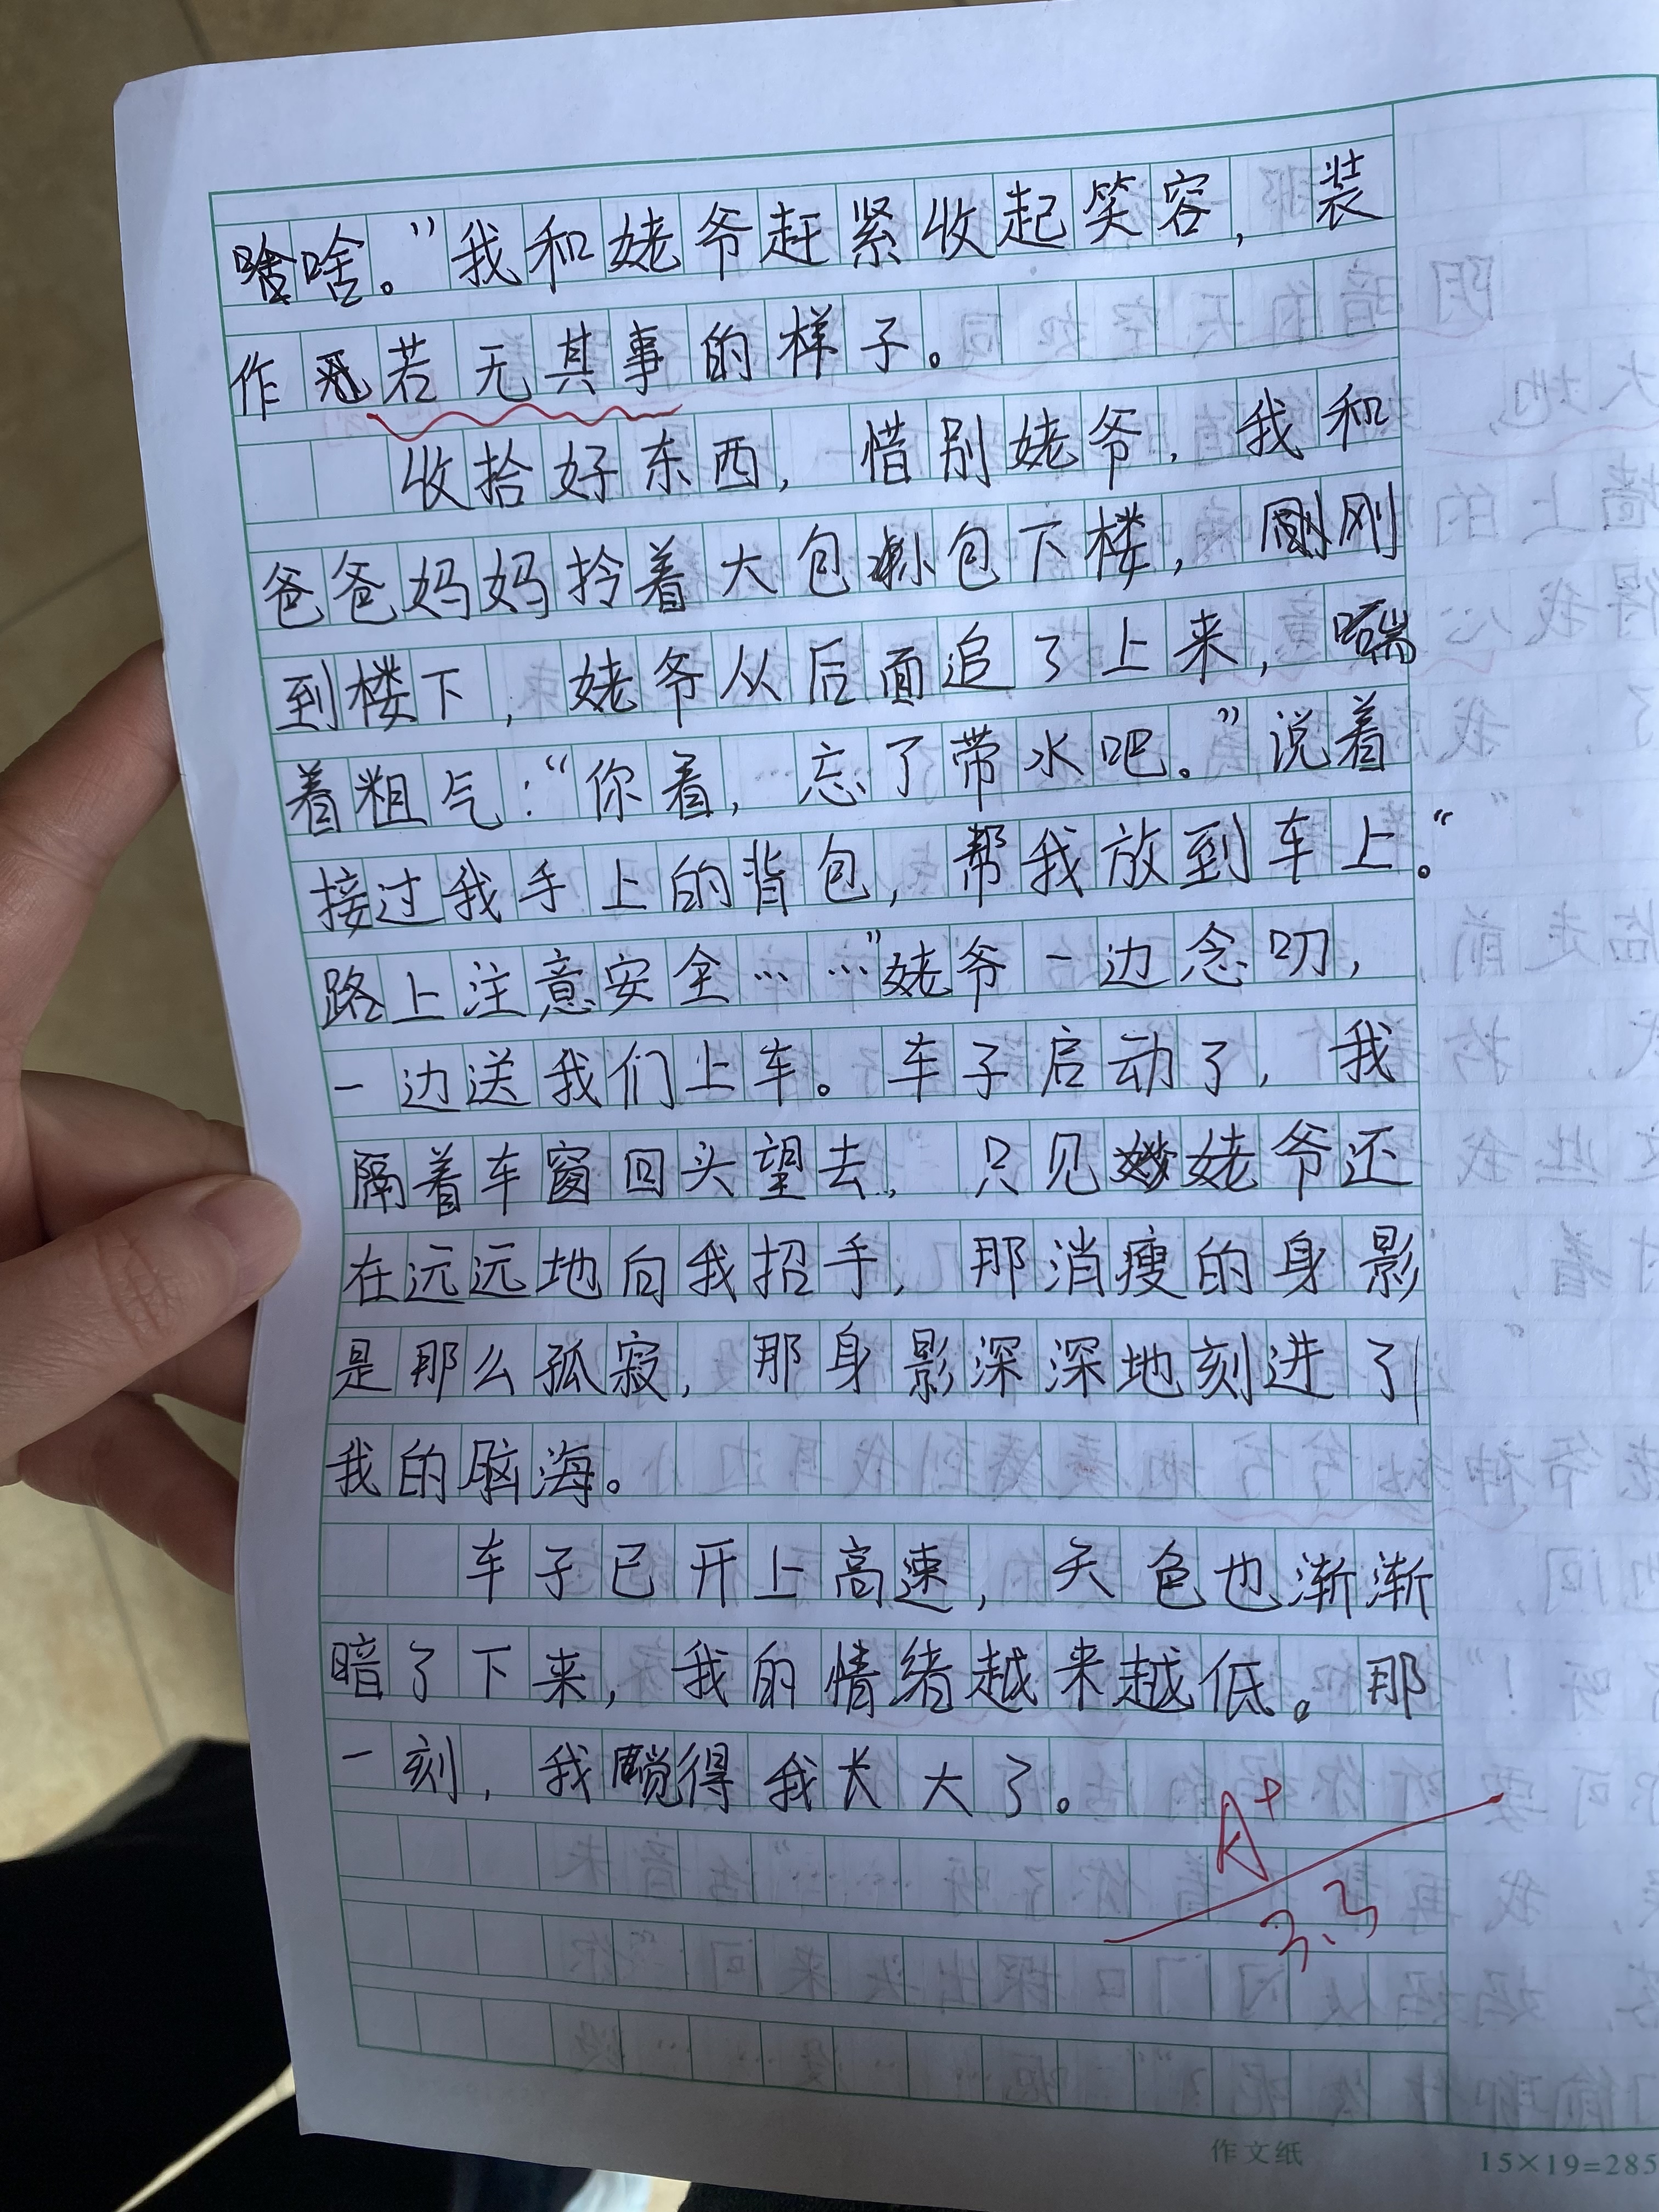 啥。”我和姥爷赶紧收起笑容，装
作若无其事的样子。
收拾好东西，惜别姥爷，我和
爸爸妈妈拎着大包小包下楼，刚刚
到楼下，姥爷从后面追了上来，喘
着粗气：“你看，忘了带水吧。”说着
接过我手上的背包，帮我放到车上。“
路上注意安全……”姥爷一边念叨，
一边送我们上车。车子启动了，我
隔着车窗回头望去，只见姥爷还
在远远地向我招手，那消瘦的身影
是那么孤寂，那身影深深地刻进了
我的脑海。
车子已开上高速，天色也渐渐
暗了下来，我的情绪越来越低。那
一刻，我觉得我长大了。
A+
3.3
作文纸
15×19=285